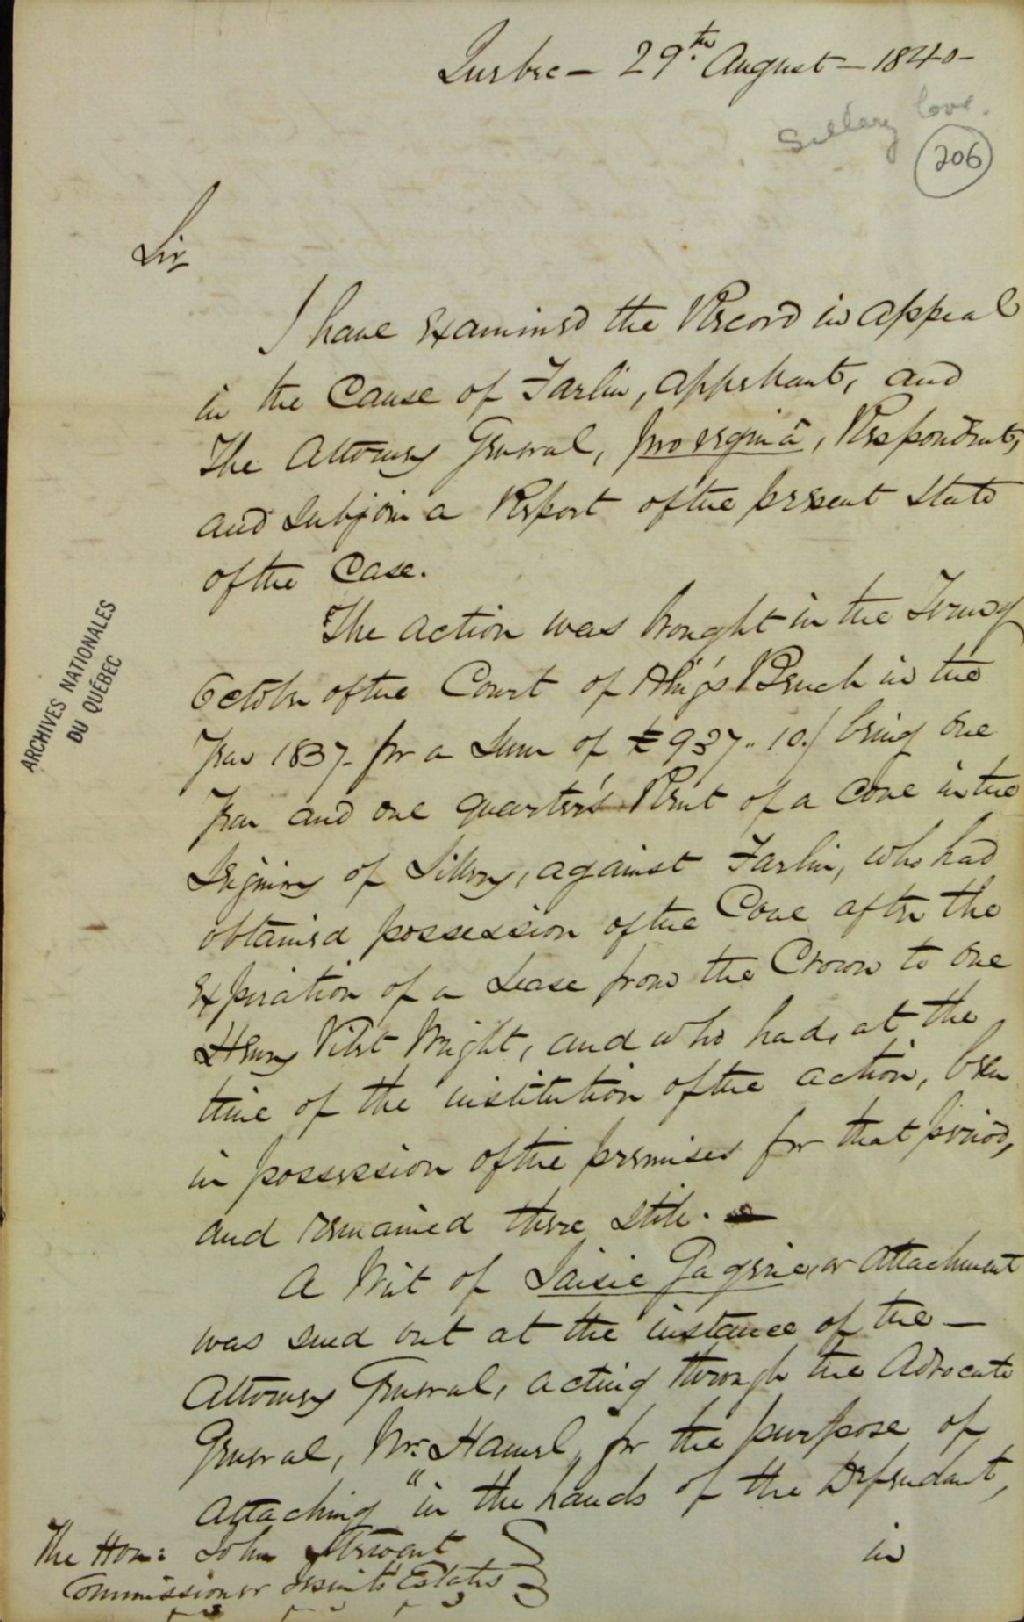 Quebec – 29.th August – 1840 –
Sillery Cove.
206
Sir
I have examined the Record in appeal
in the Cause of Farlin, appellant, and
The Attorney General, pro regina, Respondent,
and subjoin a Report of the present state
of the Case.
The action was brought in the Term of
October of the Court of King's Bench in the
Year 1837 – for a Sum of £937 " 10./ being one
Year and one quarter's Rent of a Cove in the
Seigniory of Sillery, against Farlin, who had
obtained possession of the Cove after the
expiration of a Lease from the Crown to one
Henry Wright, and who had, at the
time of the institution of the action, been
in possession of the premises for that period,
and remained there still.
A Writ of Saisie Gagerie, or attachment
was sued out at the instance of the –
Attorney General, acting through the Advocate
General, Mr. Hamel, for the purpose of
attaching "in the hands of the Defendant,
in
The Hon: John Stewart
Commissioner Jesuits' Estates
ARCHIVES NATIONALES
DU QUÉBEC